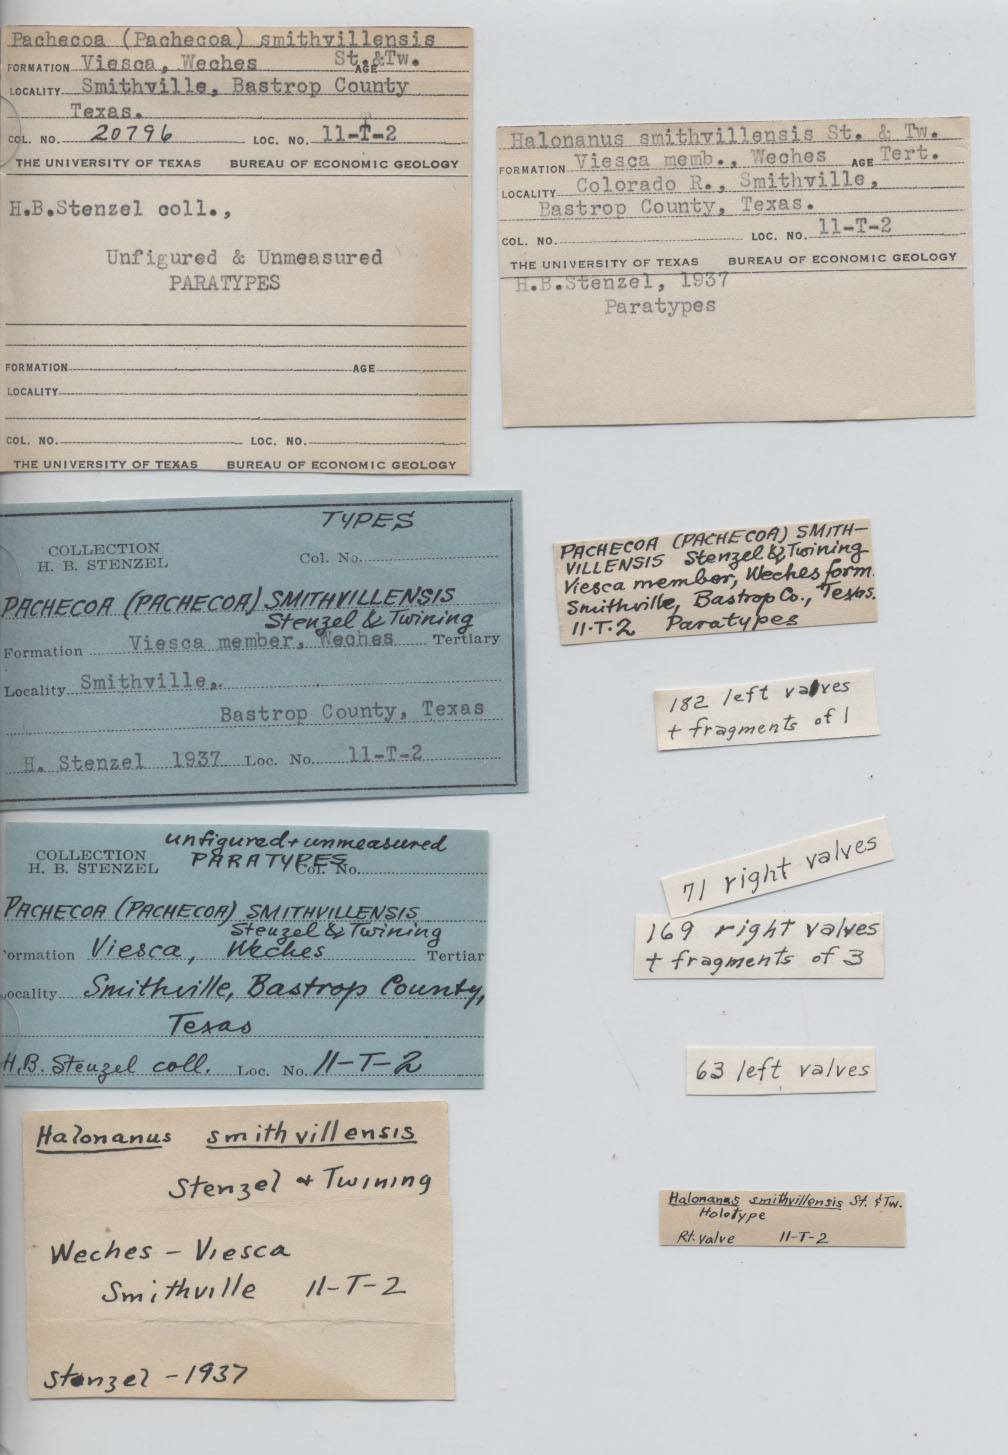 Pachecoa (Pachecoa) smithvillensis
FORMATION Viesca, Weches AGE St.&Tw.
LOCALITY Smithville, Bastrop County
Texas.
COL. NO. 20796 LOC. NO. 11-T-2
THE UNIVERSITY OF TEXAS BUREAU OF ECONOMIC GEOLOGY
H.B.Stenzel coll.,
Unfigured & Unmeasured
PARATYPES
FORMATION AGE
LOCALITY
COL. NO. LOC. NO.
THE UNIVERSITY OF TEXAS BUREAU OF ECONOMIC GEOLOGY
Halonanus smithvillensis St. & Tw.
FORMATION Viesca memb., Weches AGE Tert.
LOCALITY Colorado R., Smithville,
Bastrop County, Texas.
COL. NO. LOC. NO. 11-T-2
THE UNIVERSITY OF TEXAS BUREAU OF ECONOMIC GEOLOGY
H.B.Stenzel, 1937
Paratypes
TYPES
COLLECTION
H. B. STENZEL
Col. No.
PACHECOA (PACHECOA) SMITHVILLENSIS
Stenzel & Twining
Formation Viesca member, Weches Tertiary
Locality Smithville,
Bastrop County, Texas
H. Stenzel 1937 Loc. No. 11-T-2
PACHECOA (PACHECOA) SMITH-
VILLENSIS Stenzel & Twining
Viesca member, Weches form.
Smithville, Bastrop Co., Texas.
11-T-2 Paratypes
182 left valves
+ fragments of 1
71 right valves
169 right valves
+ fragments of 3
63 left valves
unfigured + unmeasured
PARATYPES
COLLECTION
H. B. STENZEL
Col. No.
PACHECOA (PACHECOA) SMITHVILLENSIS
Stenzel & Twining
ormation Viesca, Weches Tertiar
ocality Smithville, Bastrop County,
Texas
H.B. Stenzel coll. Loc. No. 11-T-2
Halonanus smithvillensis
Stenzel + Twining
Weches - Viesca
Smithville 11-T-2
Stenzel - 1937
Halonanus smithvillensis St. & Tw.
Holotype
Rt. valve 11-T-2